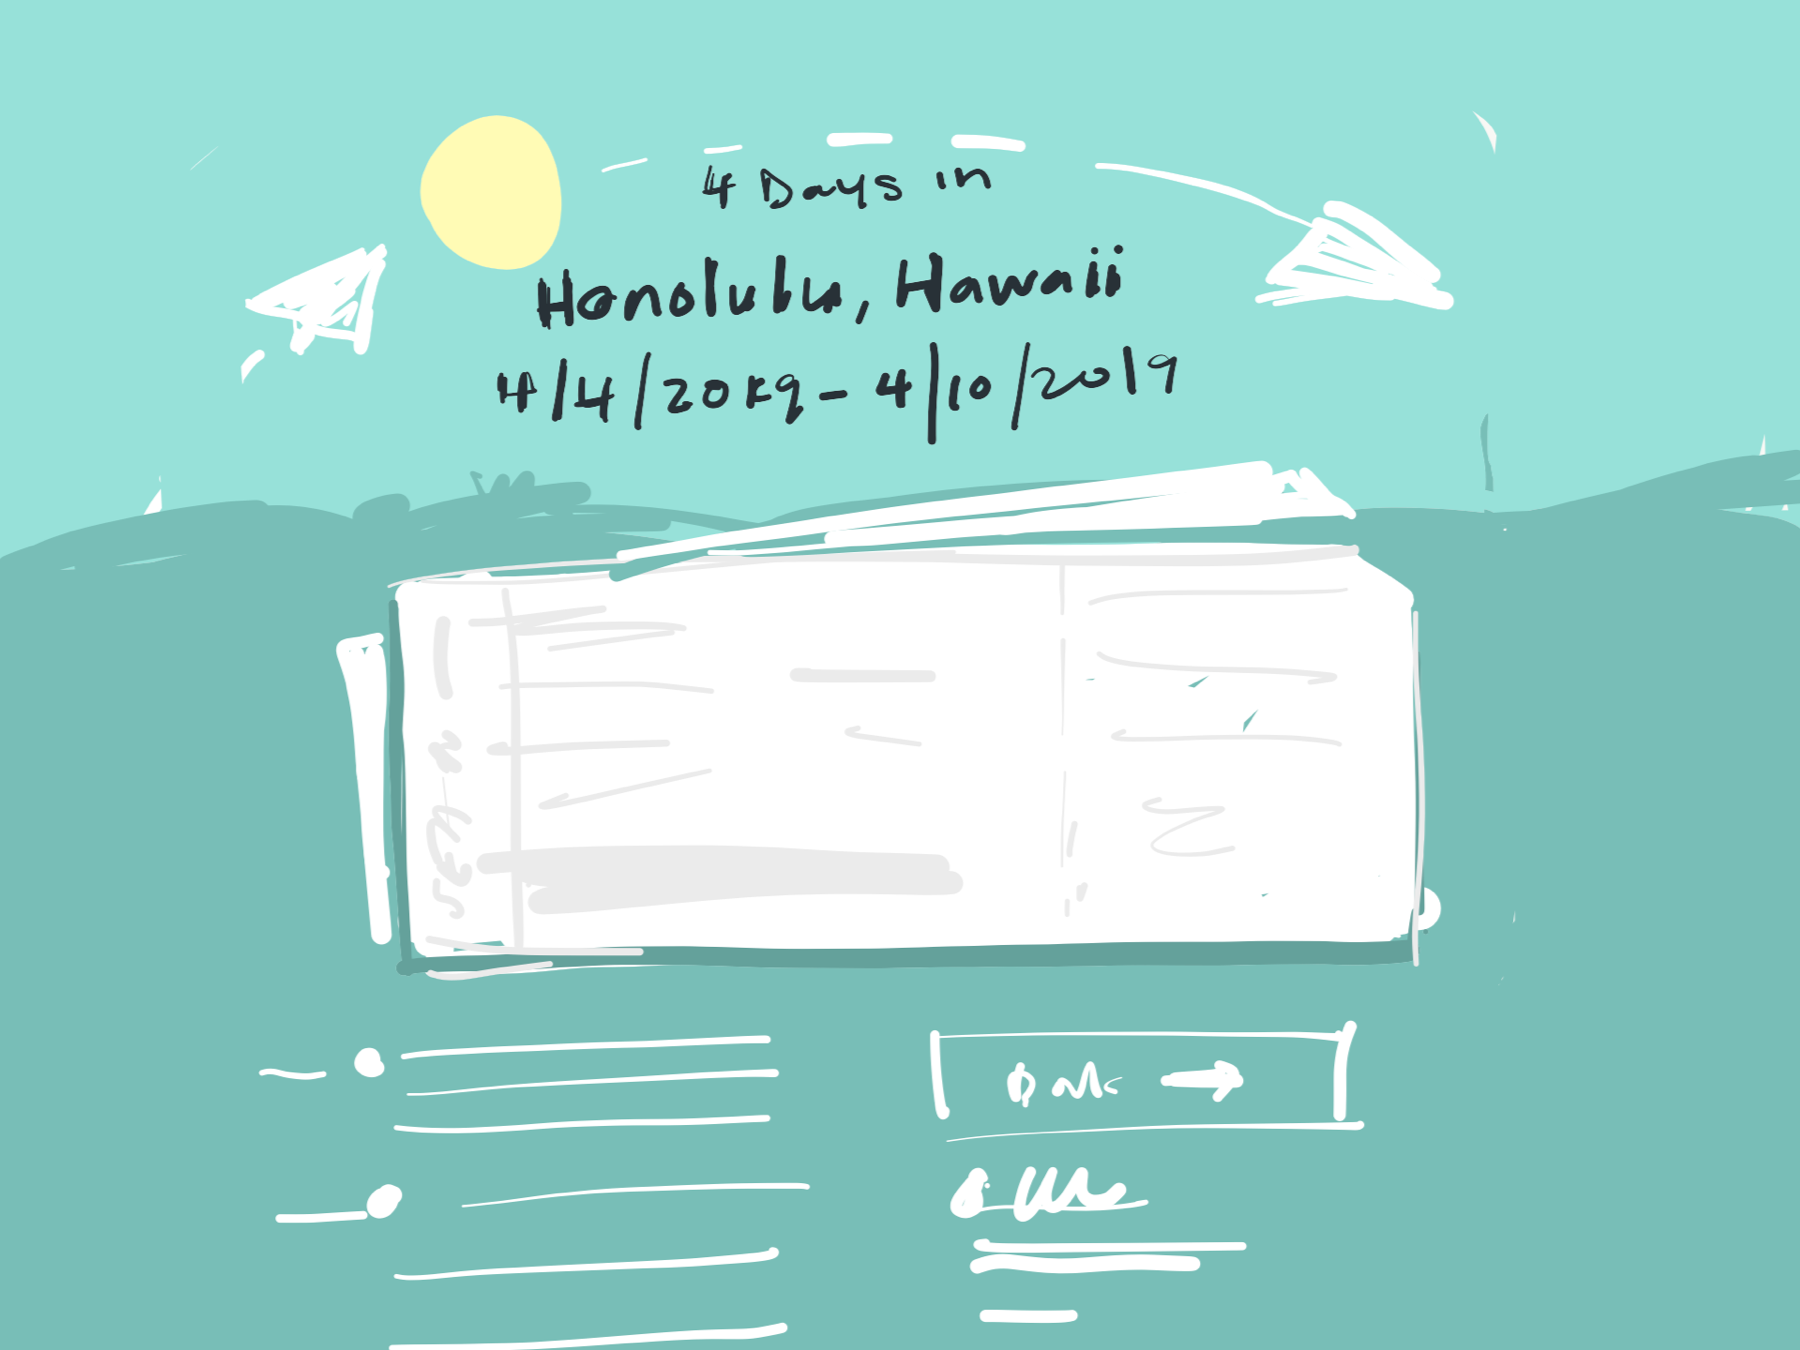 4 Days in
Honolulu, Hawaii
4/4/2019 - 4/10/2019